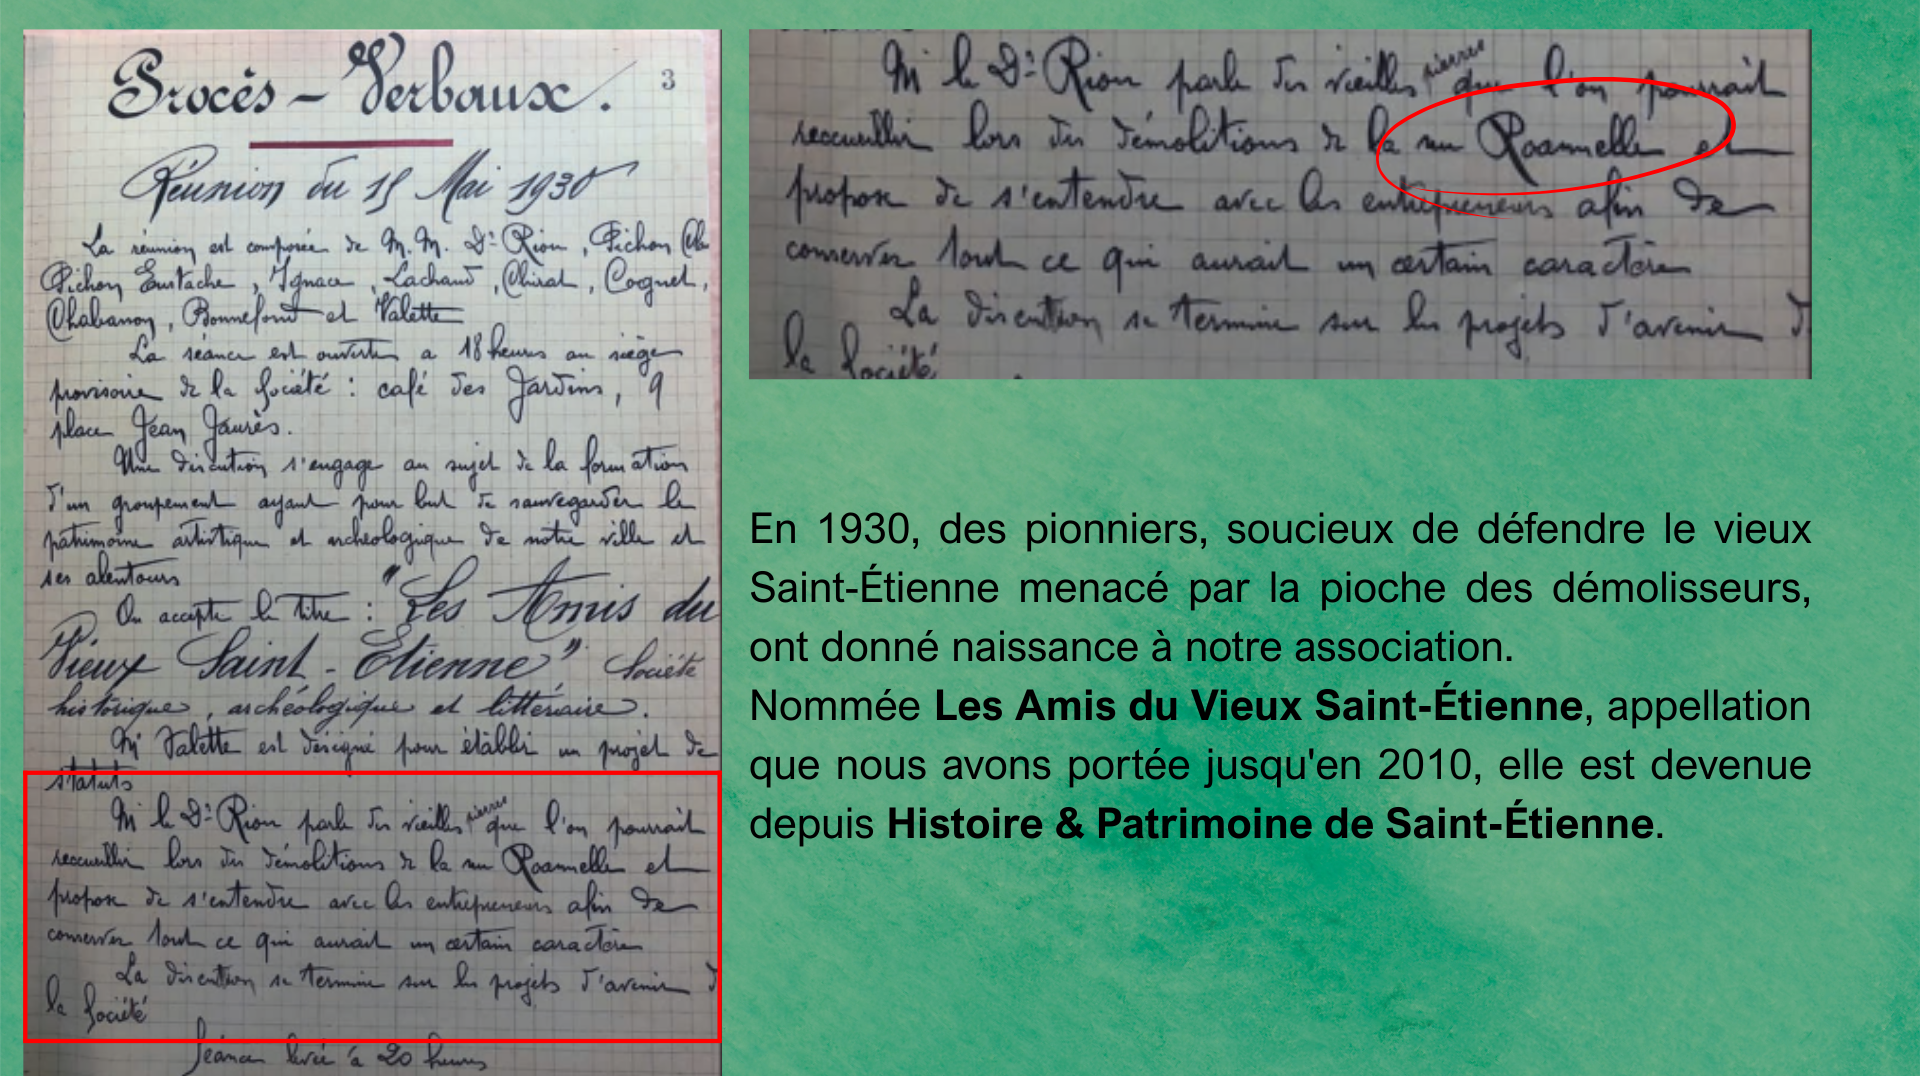 Procés - Verbaux.
3
Réunion du 15 Mai 1930
La réunion est composée de M.M. Dr Riou, Pichon
Pichon Eustache, Ignace, Lachaud, Chirat, Coignet,
Chabanon, Bonnefond et Valette
La séance est ouverte a 18 heures au siège
provisoire de la Société : café des Jardins, 9
place Jean Jaurès.
Une discution s'engage au sujet de la formation
d'un groupement ayant pour but de sauvegarder le
patrimoine artistique et archéologique de notre ville et
ses alentours
On accepte le titre : "Les Amis du
Vieux Saint-Etienne" Société
historique, archéologique et littéraire.
Mr Valette est désigné pour établir un projet de
statuts
M le Dr Riou parle des vieilles pierres que l'on pourrait
reccueillir lors des démolitions de la rue Roannelle et
propose de s'entendre avec les entrepreneurs afin de
conserver tout ce qui aurait un certain caractère
La discution se termine sur les projets d'avenir d
la Société
Séance levée à 20 heures
M le Dr Riou parle des vieilles pierres que l'on pourrait
reccueillir lors des démolitions de la rue Roannelle et
propose de s'entendre avec les entrepreneurs afin de
conserver tout ce qui aurait un certain caractère
La discution se termine sur les projets d'avenir d
la Société
En 1930, des pionniers, soucieux de défendre le vieux
Saint-Étienne menacé par la pioche des démolisseurs,
ont donné naissance à notre association.
Nommée Les Amis du Vieux Saint-Étienne, appellation
que nous avons portée jusqu'en 2010, elle est devenue
depuis Histoire & Patrimoine de Saint-Étienne.